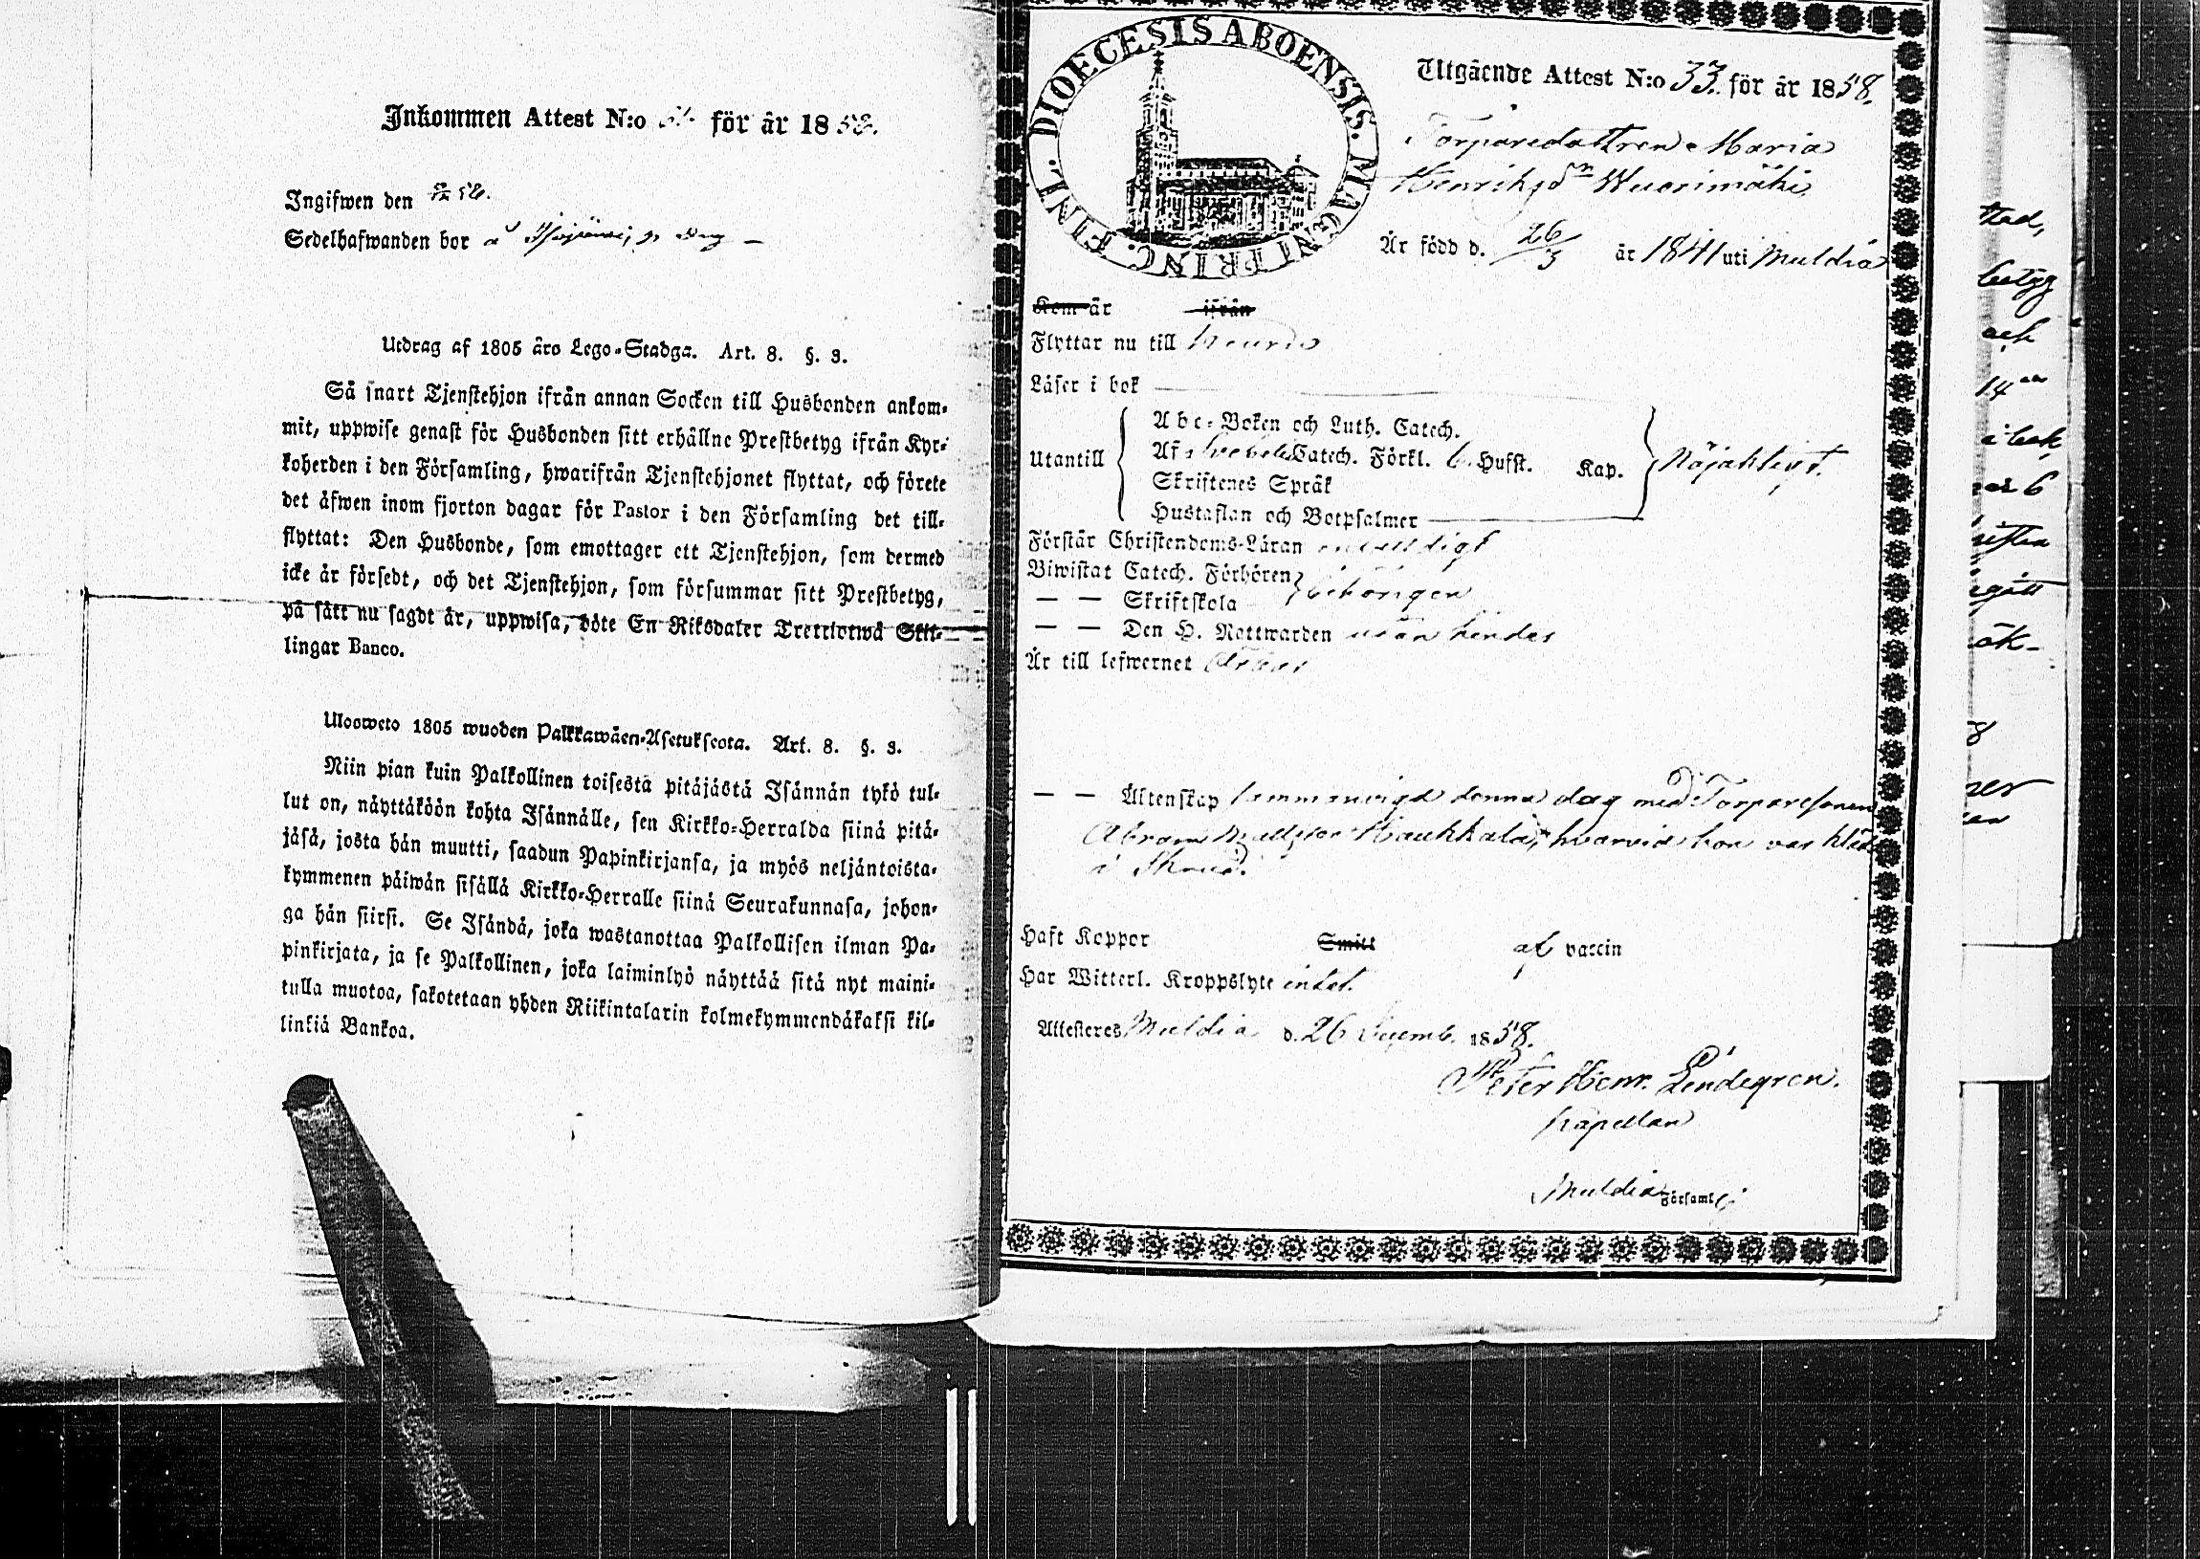 Inkommen Attest N:o för år 1858.
Ingifwen den
Sedelhafwanden bor å
Utdrag af 1805 års Lego-Stadga. Art. 8. §. 3.
Så snart Tjenstehjon ifrån annan Socken till Husbonden ankom-
mit, uppwise genast för Husbonden sitt erhållne Prestbetyg ifrån Kyr-
koherden i den Församling, hwarifrån Tjenstehjonet flyttat, och förete
det äfwen inom fjorton dagar för Pastor i den Församling det till-
flyttat: Den Husbonde, som emottager ett Tjenstehjon, som dermed
icke är försedt, och det Tjenstehjon, som försummar sitt Prestbetyg,
på sätt nu sagdt är, uppwisa, böte En Riksdaler Trettiotwå Skil-
lingar Banco.
Ulosweto 1805 wuoden Palkkawäen-Asetuksesta. Art. 8. §. 3.
Niin pian kuin Palkollinen toisesta pitäjästä Isännän tykö tul-
lut on, näyttäköön kohta Isännälle, sen Kirkko-Herralda siinä pitä-
jäsä, josta hän muutti, saadun Papinkirjansa, ja myös neljäntoista-
kymmenen päiwän sisällä Kirkko-Herralle siinä Seurakunnasa, johon-
ga hän siirsi. Se Isändä, joka wastanottaa Palkollisen ilman Pa-
pinkirjata, ja se Palkollinen, joka laiminlyö näyttää sitä nyt maini-
tulla muotoa, sakotetaan yhden Riikintalarin kolmekymmendäkaksi kil-
linkiä Bankoa.
DIOECESIS ABOENSIS. MAGNI PRINC. FINL.
Utgående Attest N:o 33. för år 1858.
Torparedottren Maria
Henriksdn Wuorimäki
Är född d. 26/3 år 1841 uti Muldia
Kom år ifrån
Flyttar nu till
Läser i bok
Utantill
Abc-Boken och Luth. Catech.
Af Svebelii Catech. Förkl. 6. Hufst. Kap. Nöjaktigt.
Skriftenes Språk
Hustaflan och Botpsalmer
Förstår Christendoms-Läran
Biwistat Catech. Förhören
— — Skriftskola behörigen
— — Den H. Nattwarden utan hinder
Är till lefwernet
— — Äktenskap sammanvigd denna dag med Torparesonen
Abram Hauhkala, hvarvid hon var klädd
i Skrud.
Haft Koppor Smitt af vaccin
Har Witterl. Kroppslyte intet.
Attesteres Muldia d. 26 Decemb. 1858.
Peter Henr. Lindegren.
Kapellan
Muldia Församl
stad,
betyg
och
i bok
6